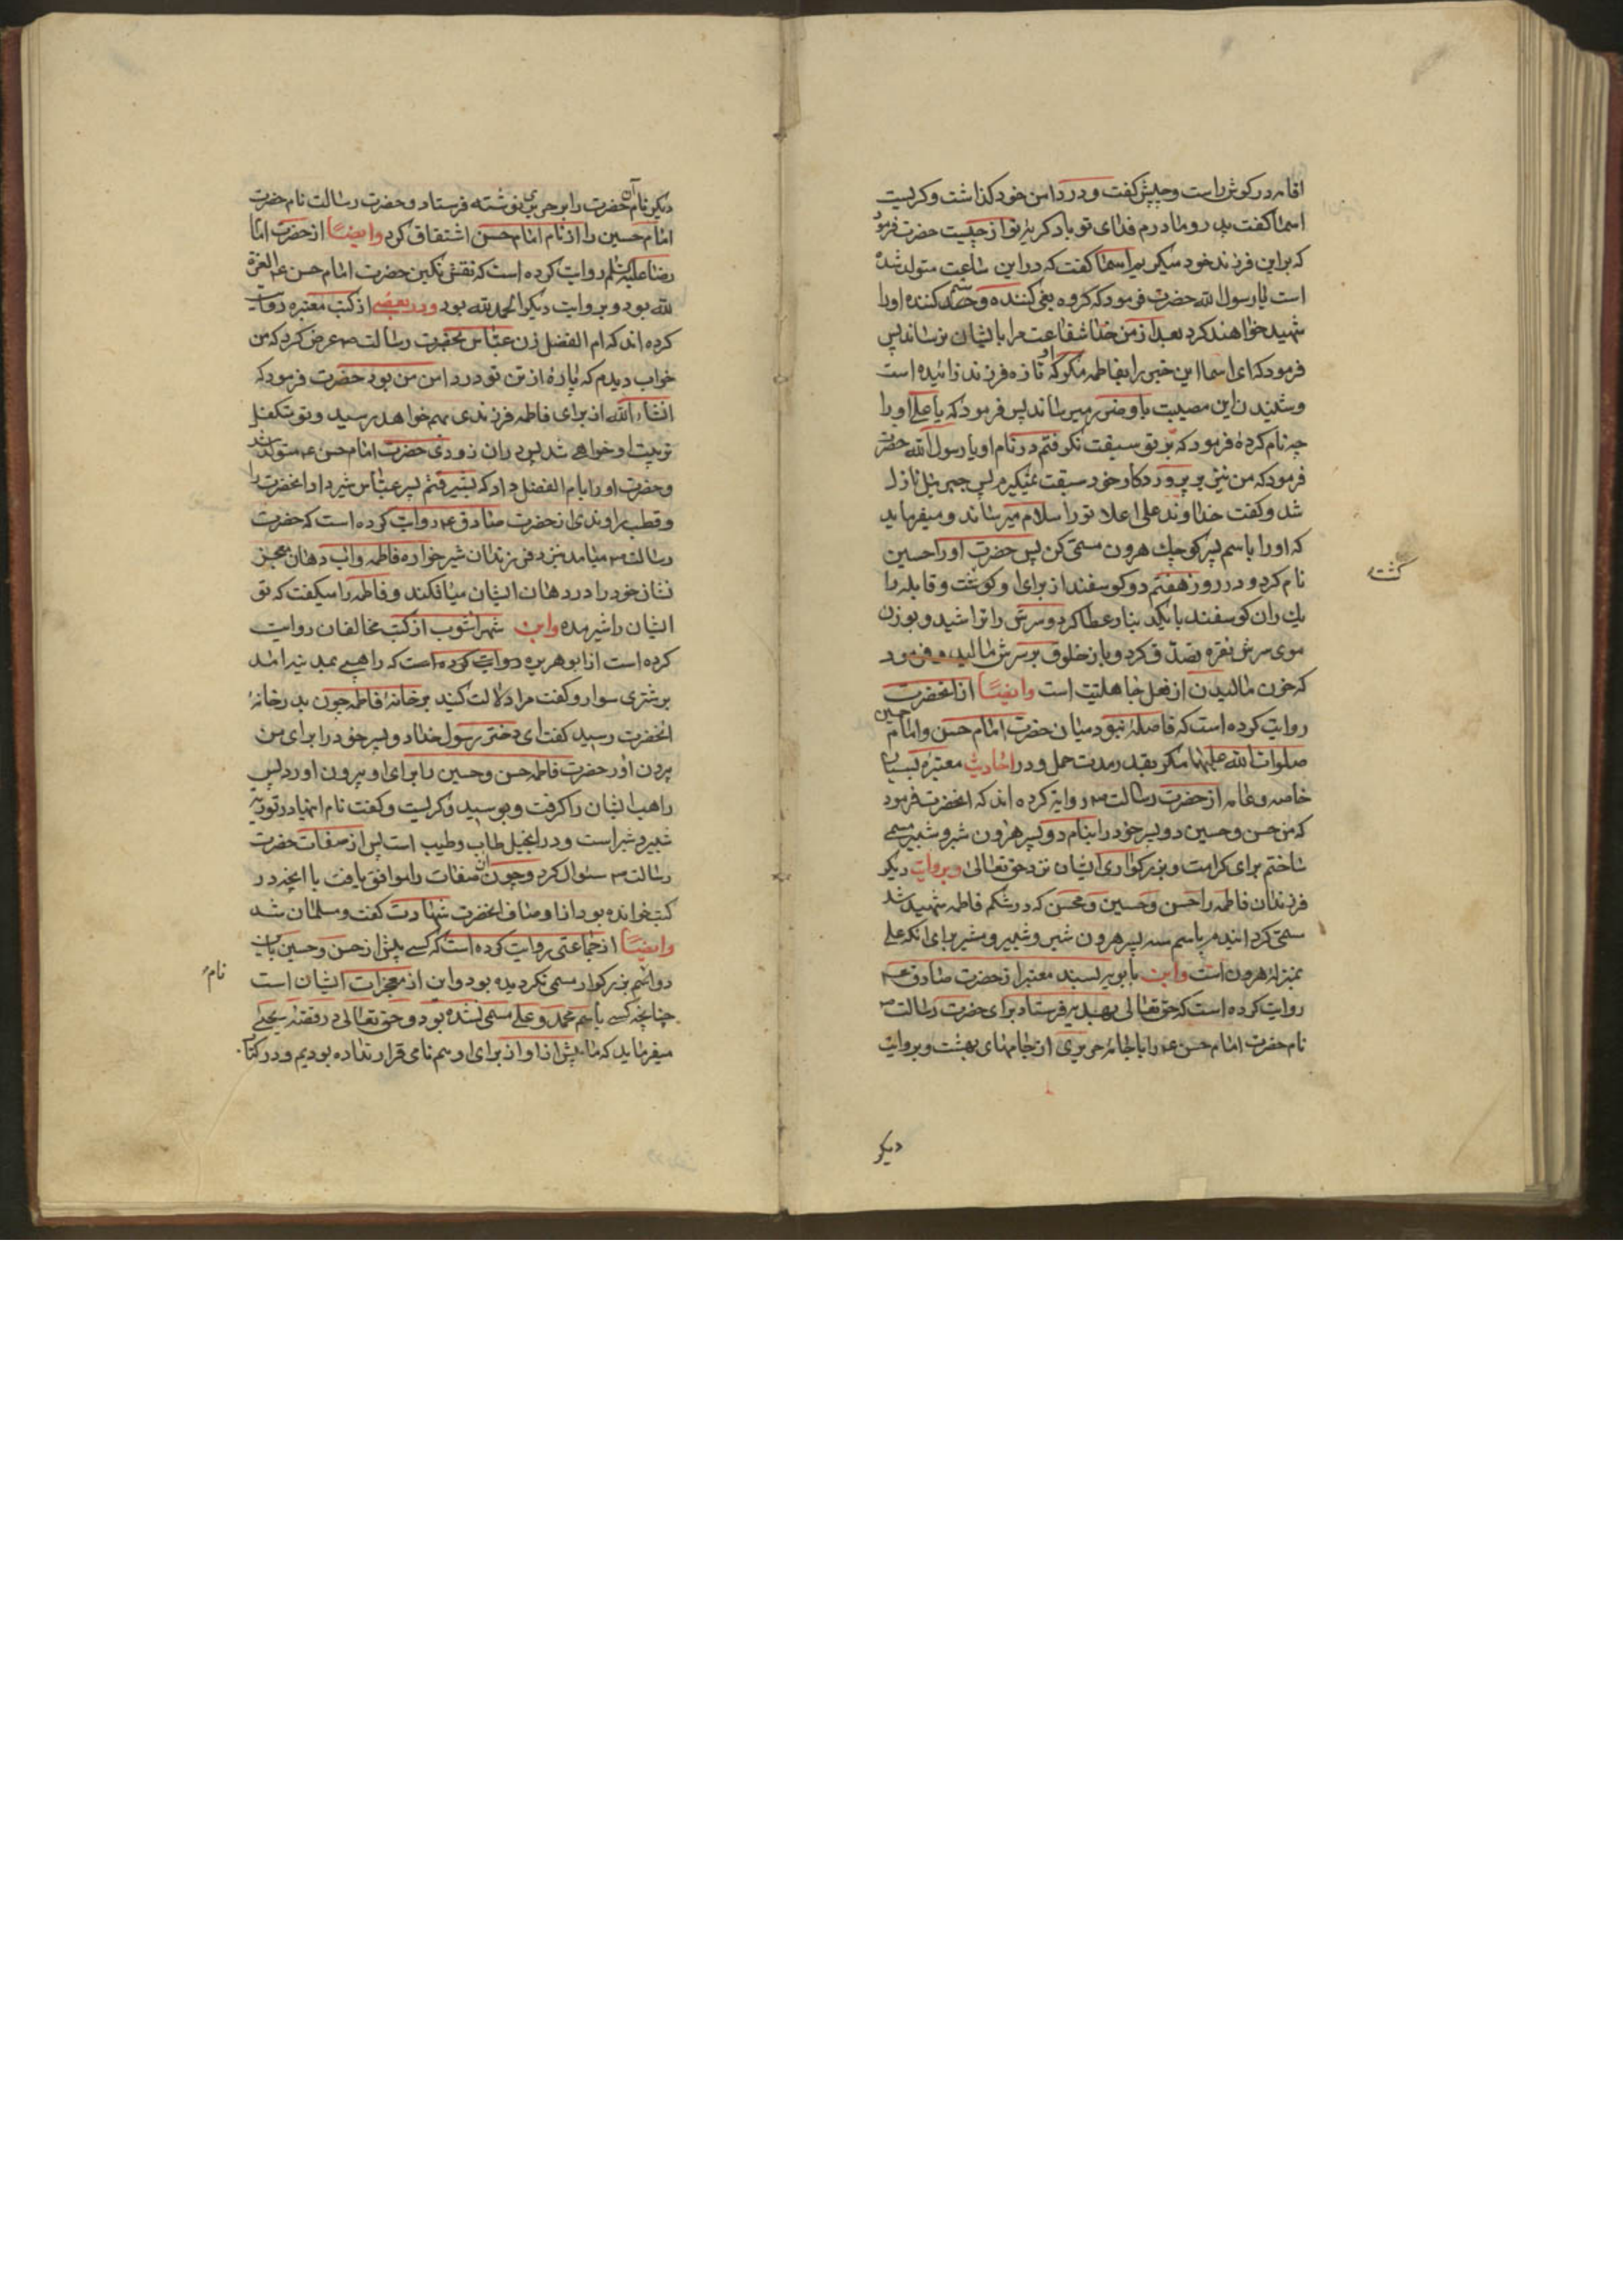 اقامه در گوش راست و چپش گفت و در دامن خود گذاشت و گریست
اسما گفت پدر و مادرم فدای تو باد گریهٔ تو از چیست حضرت فرمود
که بر این فرزند خود میگریم اسما گفت که در این ساعت متولد شده
است یا رسول الله حضرت فرمود که گروه بغی کننده و ستم کننده او را
شهید خواهند کرد بعد از من خدا شفاعت مرا بایشان نرساند پس
فرمود که ای اسما این خبر را بفاطمه مگو که او تازه فرزند زائیده است
و شنیدن این مصیبت باو ضرر میرساند پس فرمود که یا علی او را
چه نام کردهٔ فرمود که بر تو سبقت نگرفتم در نام او یا رسول الله حضرت
فرمود که من نیز بر پروردگار خود سبقت نمیگیرم پس جبرئیل نازل
شد و گفت خداوند علی اعلا تو را سلام میرساند و میفرماید
که او را باسم پسر کوچک هرون مسمی کن پس حضرت او را حسین
گشته
نام کرد و در روز هفتم دو گوسفند از برای او کوشت و قابله را
یک ران گوسفند با یکدینار عطا کرد و سرش را تراشید و بوزن
موی سرش نقره تصدق کرد و باز خلوق بر سرش مالید و فرمود
که خون مالیدن از فعل جاهلیت است وایضاً از انحضرت
روایت کرده است که فاصلهٔ نبود میان حضرت امام حسن و امام حسین
صلوات الله علیهما مگر بقدر مدت حمل و در احادیث معتبره بسیار
خاصه و عامه از حضرت رسالت ص روایة کرده اند که انحضرت فرمود
که من حسن و حسین دو پسر خود را بنام دو پسر هرون شبر و شبیر مسمی
ساختم برای کرامت و بزرگواری ایشان نزد حق تعالی و بروایت دیگر
فرزندان فاطمه را حسن و حسین و محسن که در شکم فاطمه شهید شد
مسمی گردانیدم باسم سه پسر هرون شبر و شبیر و مشبر برای انکه علی
بمنزلهٔ هرون است و ابن بابویه بسند معتبر از حضرت صادق ع
روایت کرده است که حق تعالی بهدیه فرستاد برای حضرت رسالت ص
نام حضرت امام حسن ع را با جامهٔ حریری از جامهای بهشت و بروایت
دیگر
دیگر نام آن حضرت را بر حریری نوشته فرستاد و حضرت رسالت نام حضرت
امام حسین را از نام امام حسن اشتقاق کرد وایضاً از حضرت امام
رضا علیه السلام روایت کرده است که نقش نگین حضرت امام حسن ع العزة
لله بود و بروایت دیگر الحمد لله بود و در بعضی از کتب معتبره روایت
کرده اند که ام الفضل زن عباس بحضرت رسالت ص عرض کرد که من
خواب دیدم که پارهٔ از تن تو در دامن من بود حضرت فرمود که
انشاء الله از برای فاطمه فرزندی بهم خواهد رسید و تو متکفل
تربیت او خواهی شد پس در ان زودی حضرت امام حسن ع متولد شد
و حضرت او را بام الفضل داد که بشیر قثم پسر عباس شیر داد انحضرت را
و قطب راوندی از حضرت صادق ع روایت کرده است که حضرت
رسالت ص میامد بنزد فرزندان شیرخواره فاطمه و اب دهان معجز
نشان خود را در دهان ایشان میافکند و فاطمه را میگفت که تو
ایشان را شیر مده و ابن شهراشوب از کتب مخالفان روایت
کرده است از ابو هریره روایت کرده است که راهبی بمدینه امد
بر شتری سوار و گفت مرا دلالت کنید بر خانهٔ فاطمه چون بدر خانهٔ
انحضرت رسید گفت ای دختر رسول خدا دو پسر خود را برای من
بیرون اور حضرت فاطمه حسن و حسین را برای او بیرون اورد پس
راهب ایشان را گرفت و بوسید و گریست و گفت نام اینها در توریه
شبیر و شبر است و در انجیل طاب و طیب است پس از صفات حضرت
رسالت ص سئوال کرد و چون ان صفات را موافق یافت با انچه در
کتب خوانده بود از اوصاف انحضرت شهادت گفت و مسلمان شد
وایضاً از جماعتی روایت کرده است که کسی پیش از حسن و حسین باین
نام
دو اسم بزرگوار مسمی نگردیده بود و این از معجزات ایشان است
چنانچه کسی باسم محمد و علی مسمی نشده بود و حق تعالی در قصهٔ یحیی
میفرماید که ما پیش از او از برای او همنامی قرار نداده بودیم و در کتاب